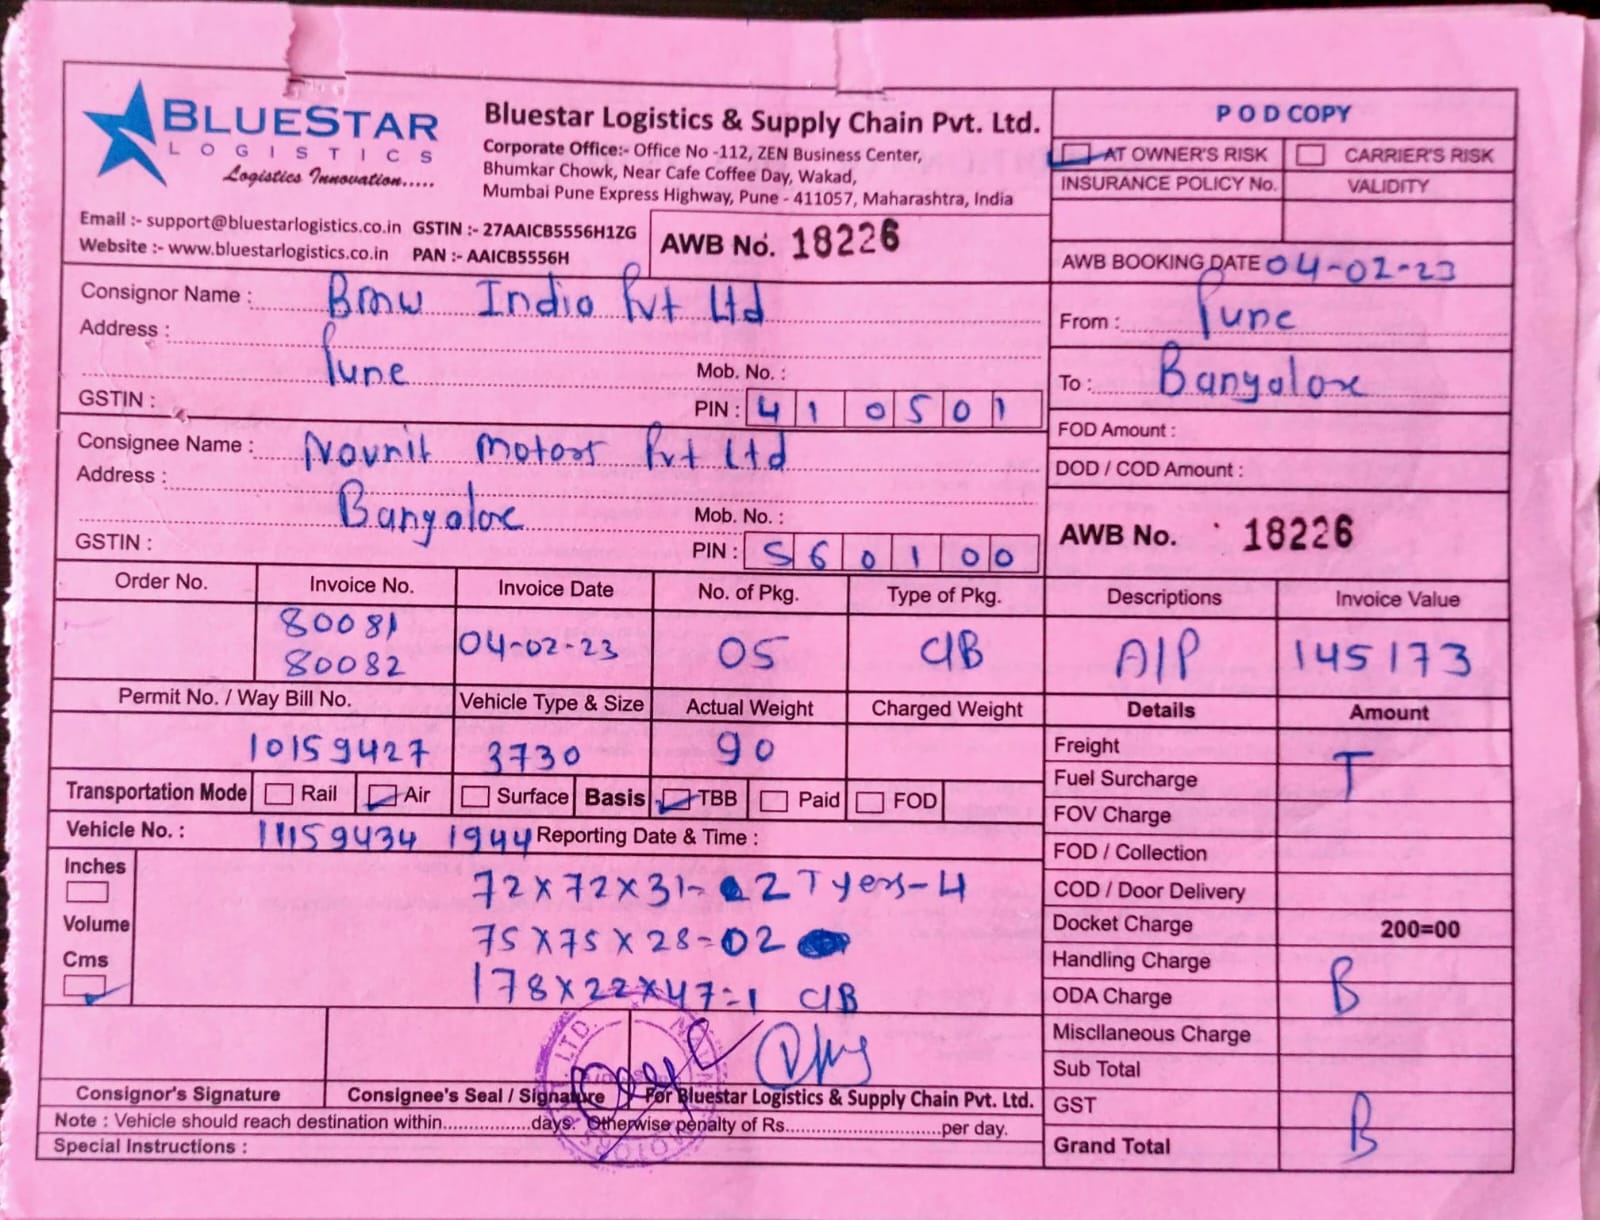 BLUESTAR
LOGISTICS
Logistics Innovation.....
Bluestar Logistics & Supply Chain Pvt. Ltd.
Corporate Office:- Office No -112, ZEN Business Center,
Bhumkar Chowk, Near Cafe Coffee Day, Wakad,
Mumbai Pune Express Highway, Pune - 411057, Maharashtra, India
Email :- support@bluestarlogistics.co.in GSTIN :- 27AAICB5556H1ZG
Website :- www.bluestarlogistics.co.in PAN :- AAICB5556H
AWB No. 18226
POD COPY
AT OWNER'S RISK CARRIER'S RISK
INSURANCE POLICY No. VALIDITY
AWB BOOKING DATE 04-02-23
Consignor Name : Bmw India Pvt Ltd
Address :
Pune Mob. No. :
GSTIN : PIN : 410501
From : Pune
To : Bangalore
Consignee Name : Navnit Motors Pvt Ltd
Address :
Bangalore Mob. No. :
GSTIN : PIN : 560100
FOD Amount :
DOD / COD Amount :
AWB No. 18226
Order No. Invoice No. Invoice Date No. of Pkg. Type of Pkg. Descriptions Invoice Value
80081
80082 04-02-23 05 C/B A/P 145173
Permit No. / Way Bill No. Vehicle Type & Size Actual Weight Charged Weight Details Amount
10159427 3730 90
Transportation Mode Rail Air Surface Basis TBB Paid FOD
Vehicle No. : 11159434 1944 Reporting Date & Time :
Inches
Volume
Cms
72x72x31-02 Tyers-4
75x75x28-02
178x22x47=1 C/B
Freight
Fuel Surcharge T
FOV Charge
FOD / Collection
COD / Door Delivery
Docket Charge 200=00
Handling Charge
ODA Charge B
Miscllaneous Charge
Sub Total
GST
Grand Total B
Consignor's Signature Consignee's Seal / Signature For Bluestar Logistics & Supply Chain Pvt. Ltd.
Note : Vehicle should reach destination within.................days. Otherwise penalty of Rs..............................per day.
Special Instructions :